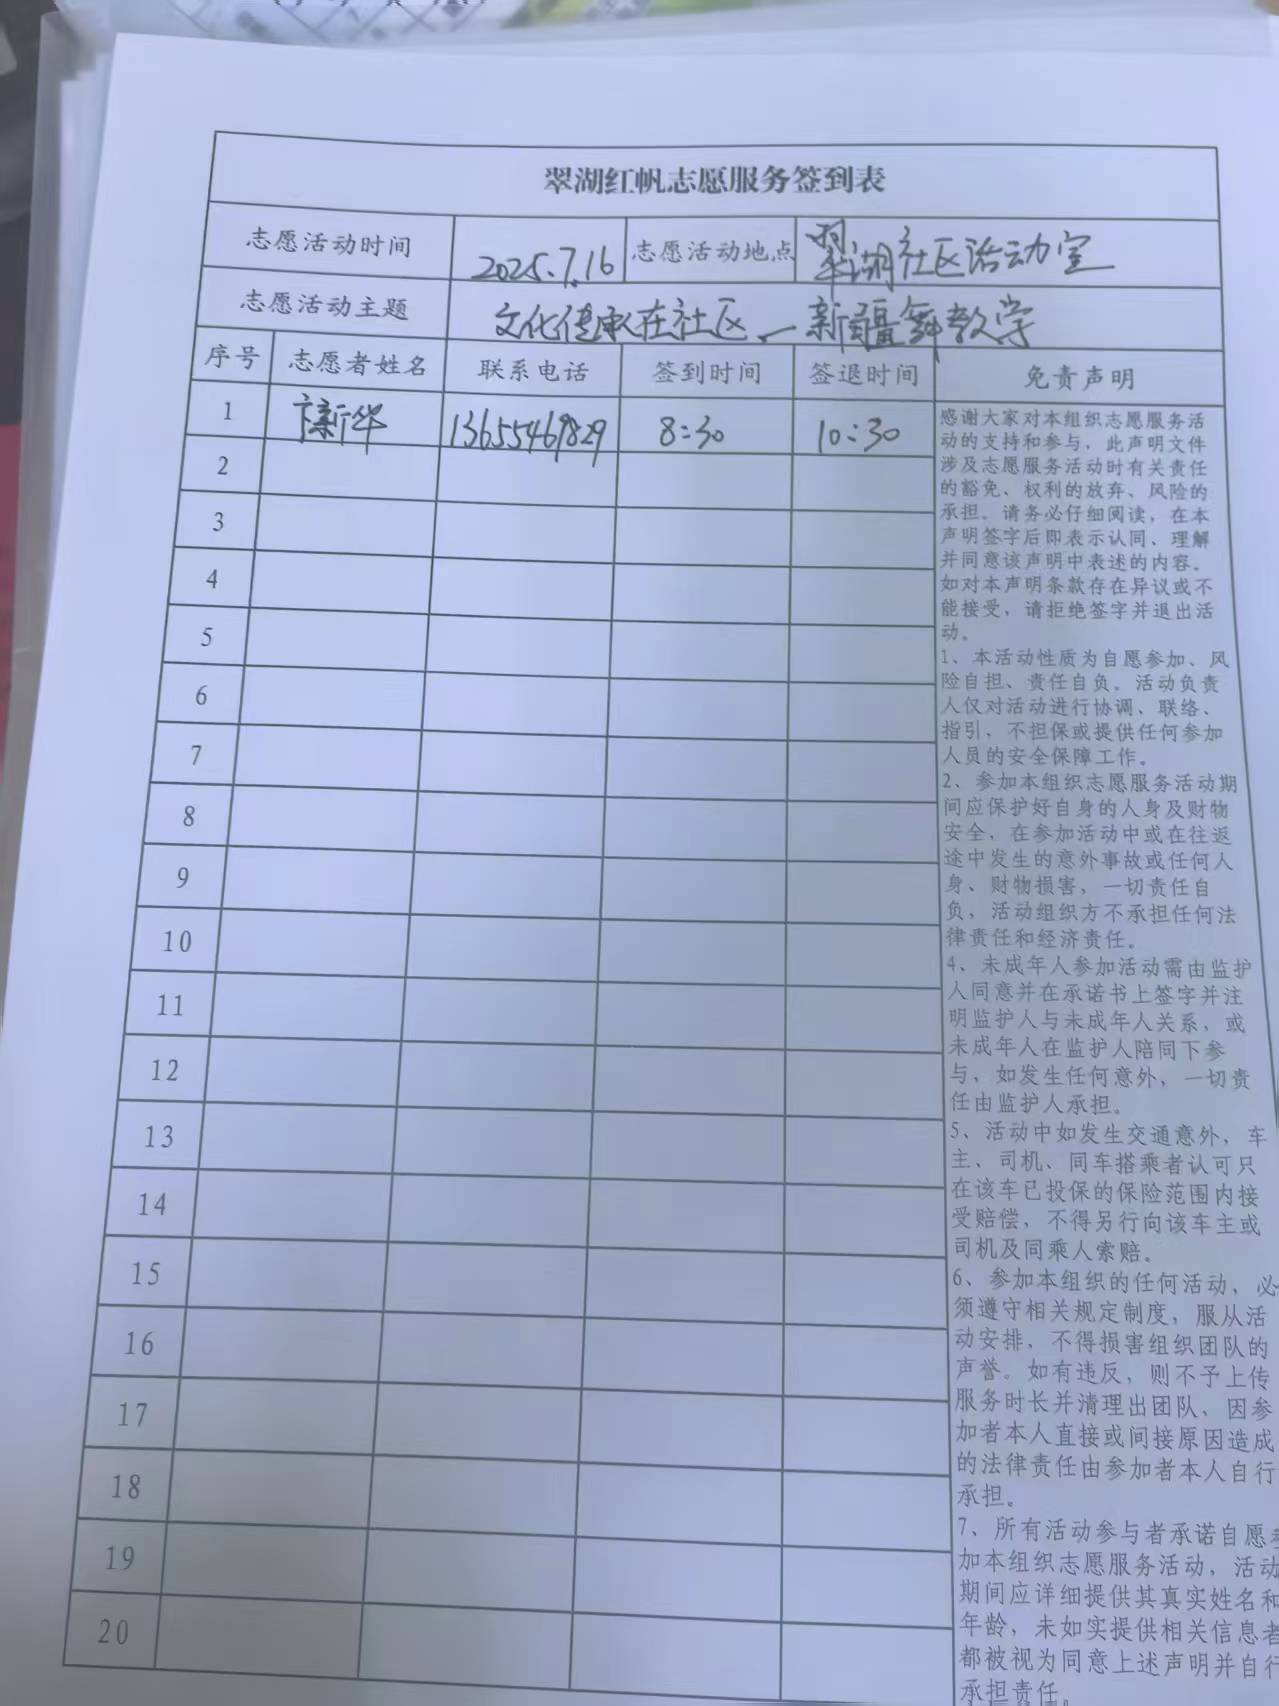 翠湖红帆志愿服务签到表
志愿活动时间 2025.7.16 志愿活动地点 翠湖社区活动室
志愿活动主题 文化传承在社区—新疆舞教学
序号 志愿者姓名 联系电话 签到时间 签退时间 免责声明
1 卞新华 13655469829 8:30 10:30
2
3
4
5
6
7
8
9
10
11
12
13
14
15
16
17
18
19
20
感谢大家对本组织志愿服务活
动的支持和参与，此声明文件
涉及志愿服务活动时有关责任
的豁免、权利的放弃、风险的
承担。请务必仔细阅读，在本
声明签字后即表示认同、理解
并同意该声明中表述的内容。
如对本声明条款存在异议或不
能接受，请拒绝签字并退出活
动。
1、本活动性质为自愿参加、风
险自担、责任自负。活动负责
人仅对活动进行协调、联络、
指引，不担保或提供任何参加
人员的安全保障工作。
2、参加本组织志愿服务活动期
间应保护好自身的人身及财物
安全，在参加活动中或在往返
途中发生的意外事故或任何人
身、财物损害，一切责任自
负，活动组织方不承担任何法
律责任和经济责任。
4、未成年人参加活动需由监护
人同意并在承诺书上签字并注
明监护人与未成年人关系，或
未成年人在监护人陪同下参
与，如发生任何意外，一切责
任由监护人承担。
5、活动中如发生交通意外，车
主、司机、同车搭乘者认可只
在该车已投保的保险范围内接
受赔偿，不得另行向该车主或
司机及同乘人索赔。
6、参加本组织的任何活动，必
须遵守相关规定制度，服从活
动安排，不得损害组织团队的
声誉。如有违反，则不予上传
服务时长并清理出团队、因参
加者本人直接或间接原因造成
的法律责任由参加者本人自行
承担。
7、所有活动参与者承诺自愿参
加本组织志愿服务活动，活动
期间应详细提供其真实姓名和
年龄，未如实提供相关信息者
都被视为同意上述声明并自行
承担责任